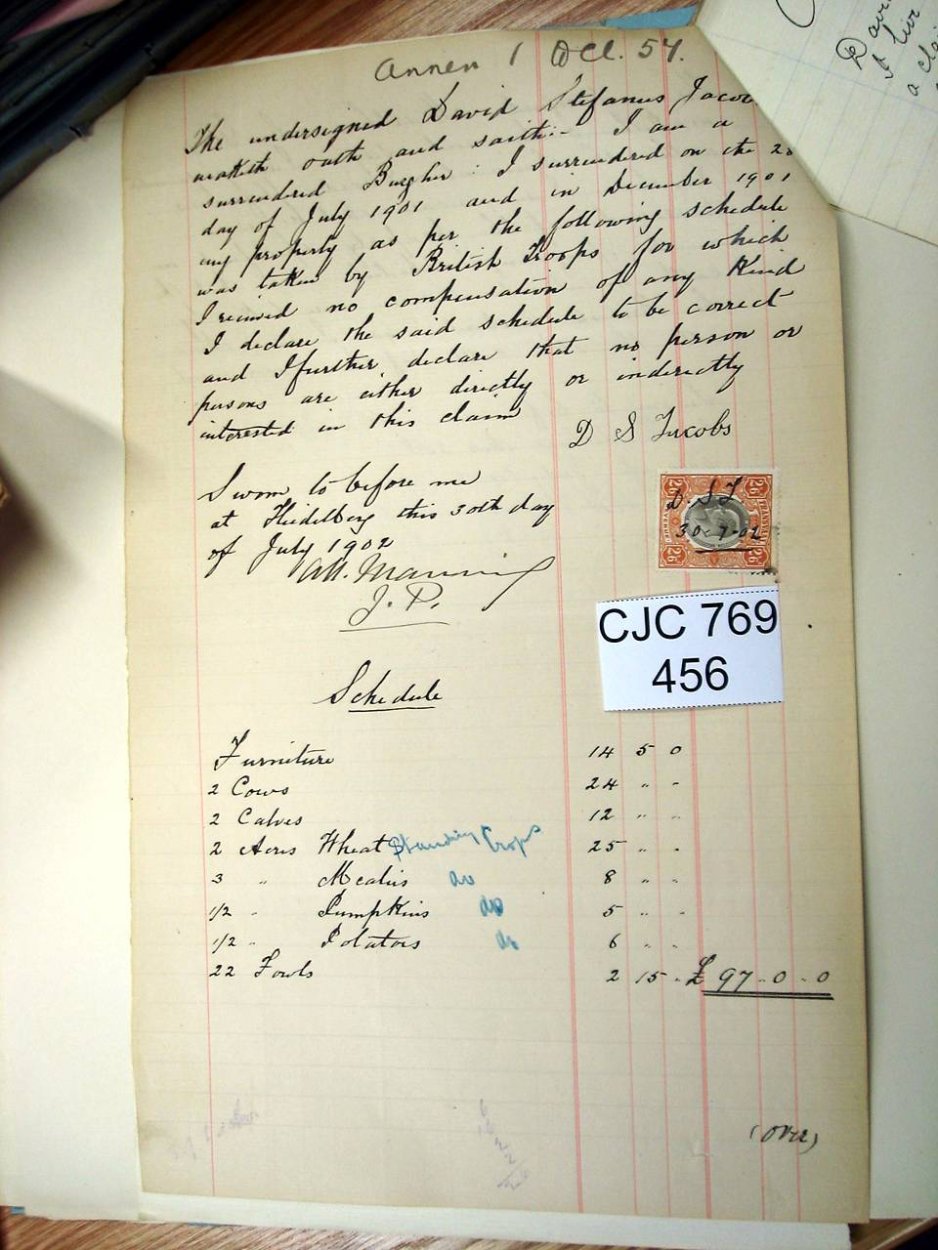 Annex 1 Dcl. 54.
The undersigned David Stefanus Jacob
maketh oath and saith:- I am a
surrendered Burgher: I surrendered on the
day of July 1901 and in December 1901
my property as per the following schedule
was taken by British Troops for which
I received no compensation of any Kind
I declare the said schedule to be correct
and I further declare that no person or
persons are either directly or indirectly
interested in this claim
D S Jacobs
Sworn to before me
at Heidelberg this 30th day
of July 1902
Manning
J.P.
D. S J
30-7-02
2/6 TRANSVAAL 2/6
REVENUE
2/6 2/6
CJC 769
456
Schedule
Furniture 14 5 0
2 Cows 24 " -
2 Calves 12 " "
2 Acres Wheat Standing Crops 25 " "
3 " Mealies do 8 " "
1/2 " Pumpkins do 5 " -
1/2 " Potatoes do 6 " "
22 Fowls 2 15 - £ 97 - 0 - 0
(over)
Davi
I liv
a clai